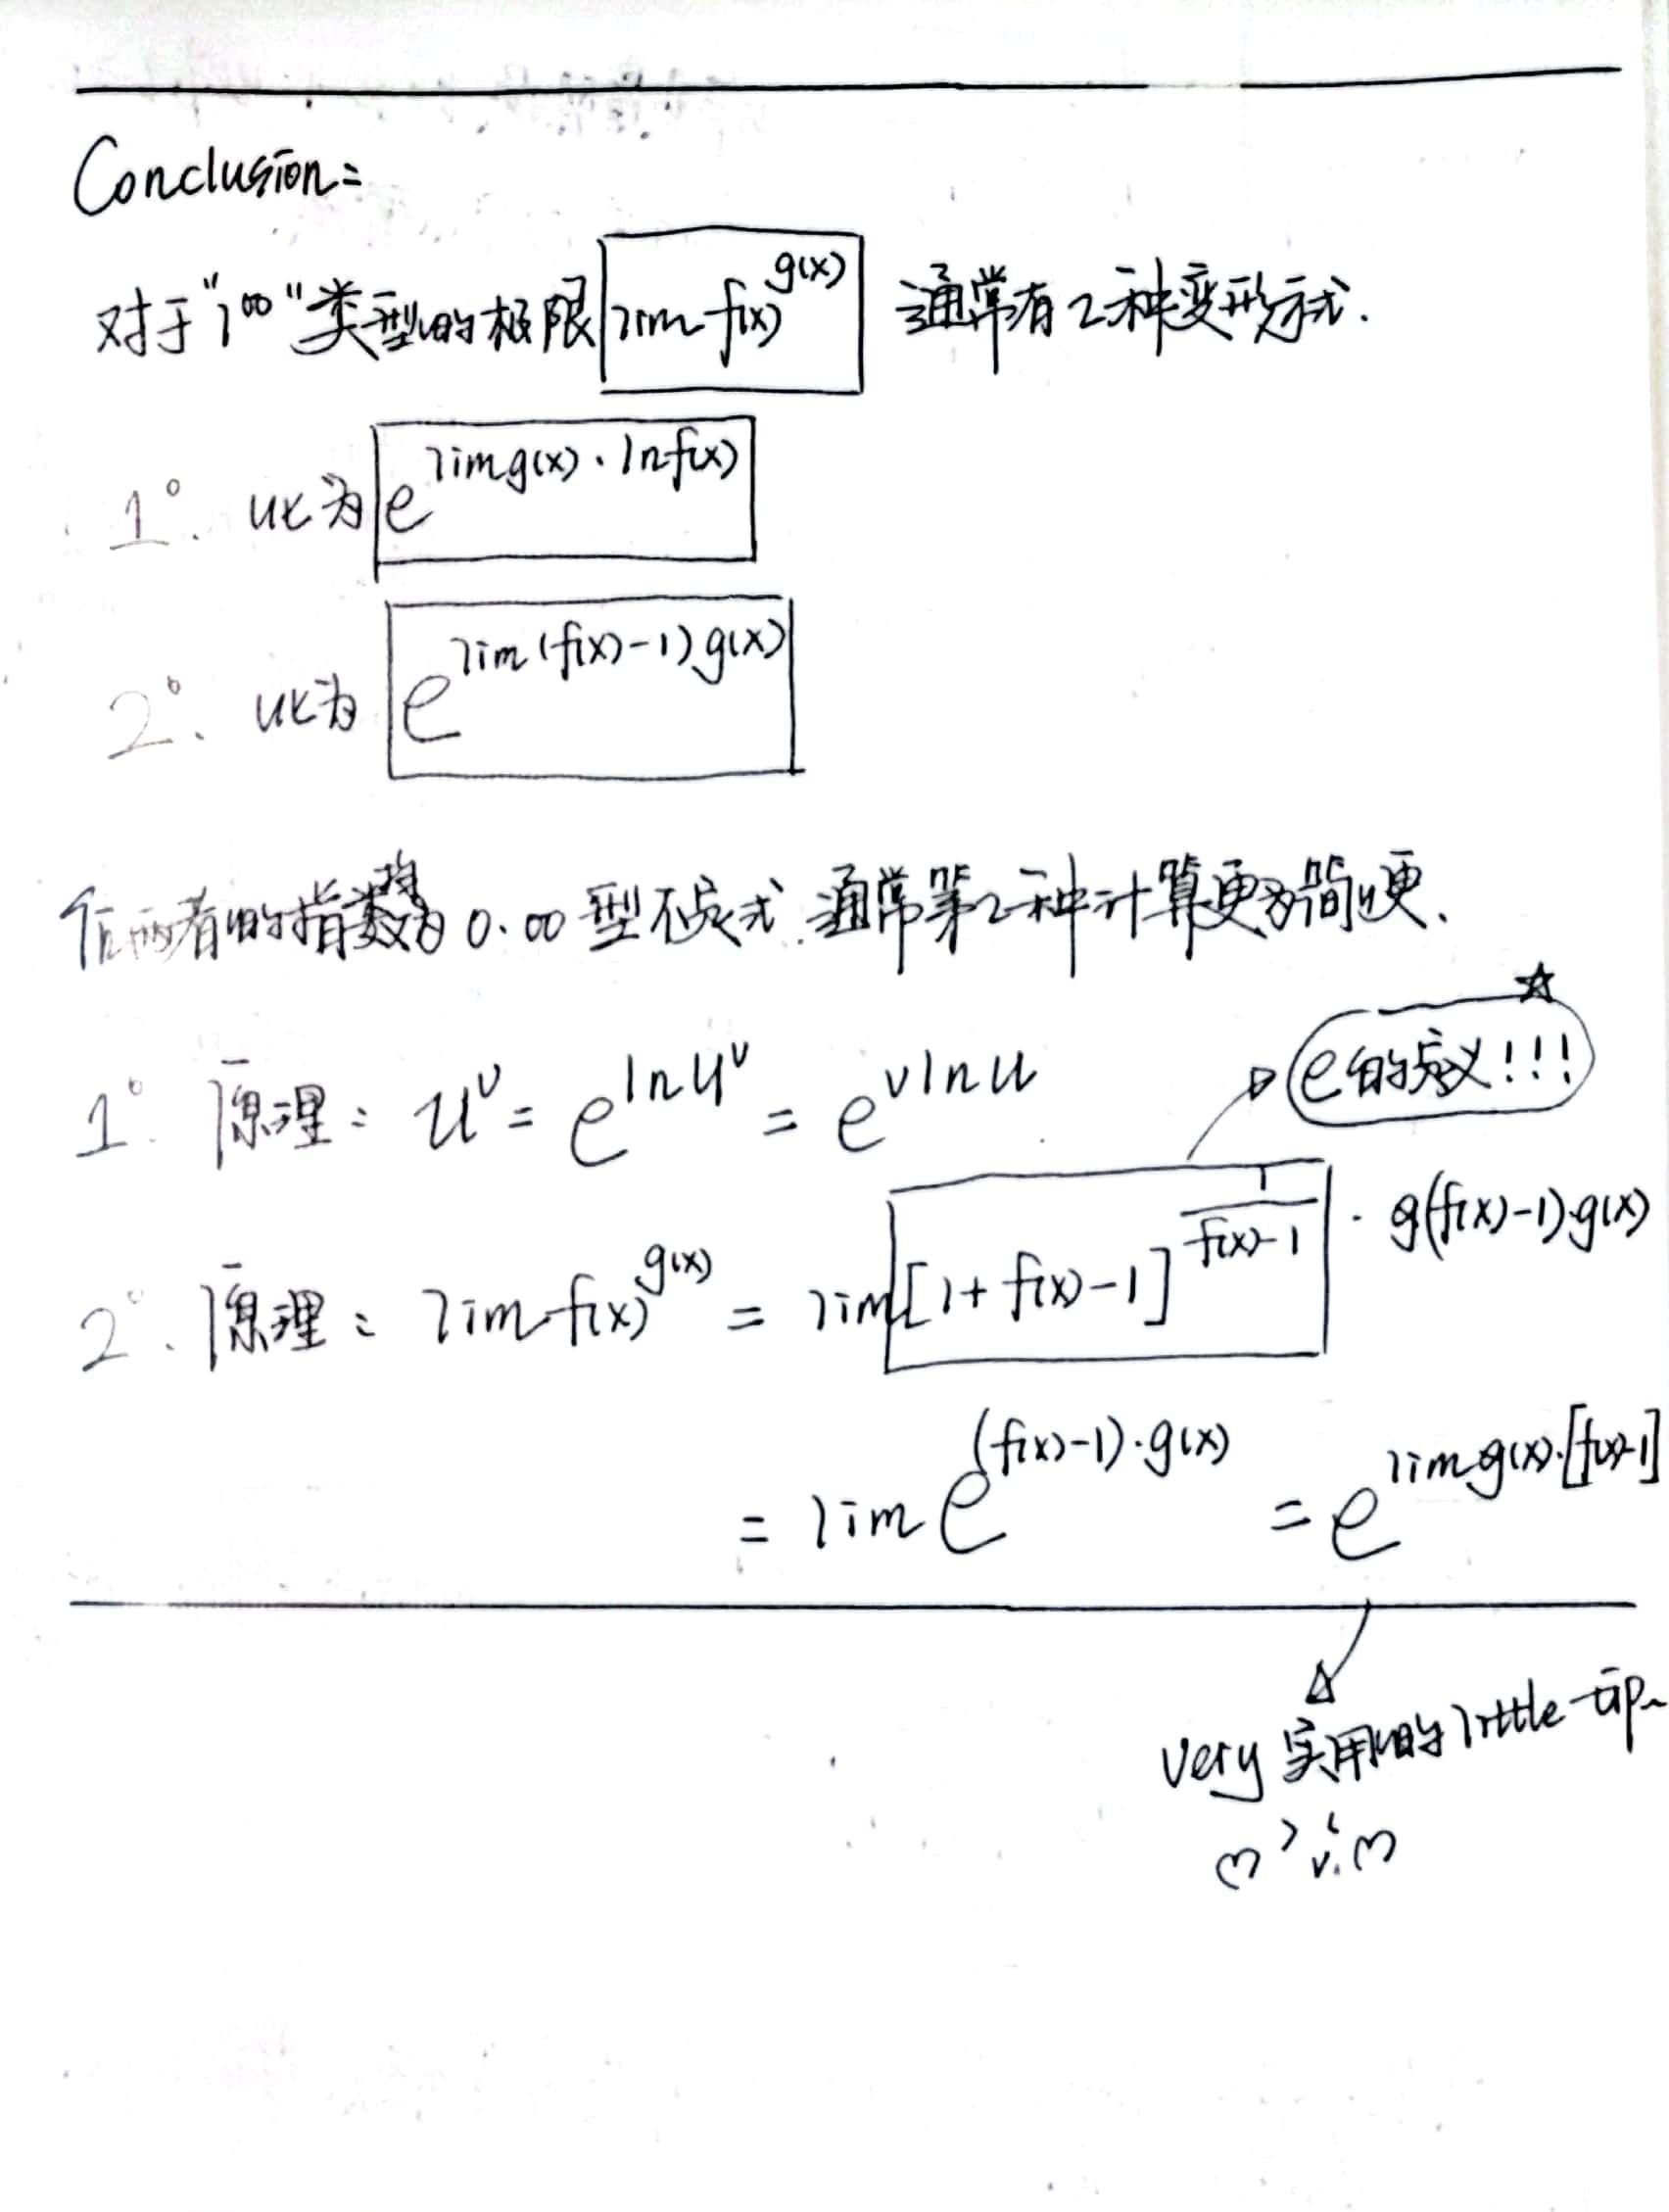 Conclusion:
对于"1^∞"类型的极限 lim f(x)^{g(x)} 通常有2种变形式.
1°. 化为 e^{lim g(x)·ln f(x)}
2°. 化为 e^{lim (f(x)-1)g(x)}
两者的指数均为 0·∞ 型不定式.通常第2种计算更为简便.
e的定义!!!
1°. 原理: u^v = e^{ln u^v} = e^{v ln u}
2°. 原理: lim f(x)^{g(x)} = lim [1+f(x)-1]^{\frac{1}{f(x)-1} · g(f(x)-1)·g(x)}
= lim e^{(f(x)-1)·g(x)} = e^{lim g(x)·[f(x)-1]}
very 实用的 little tip~